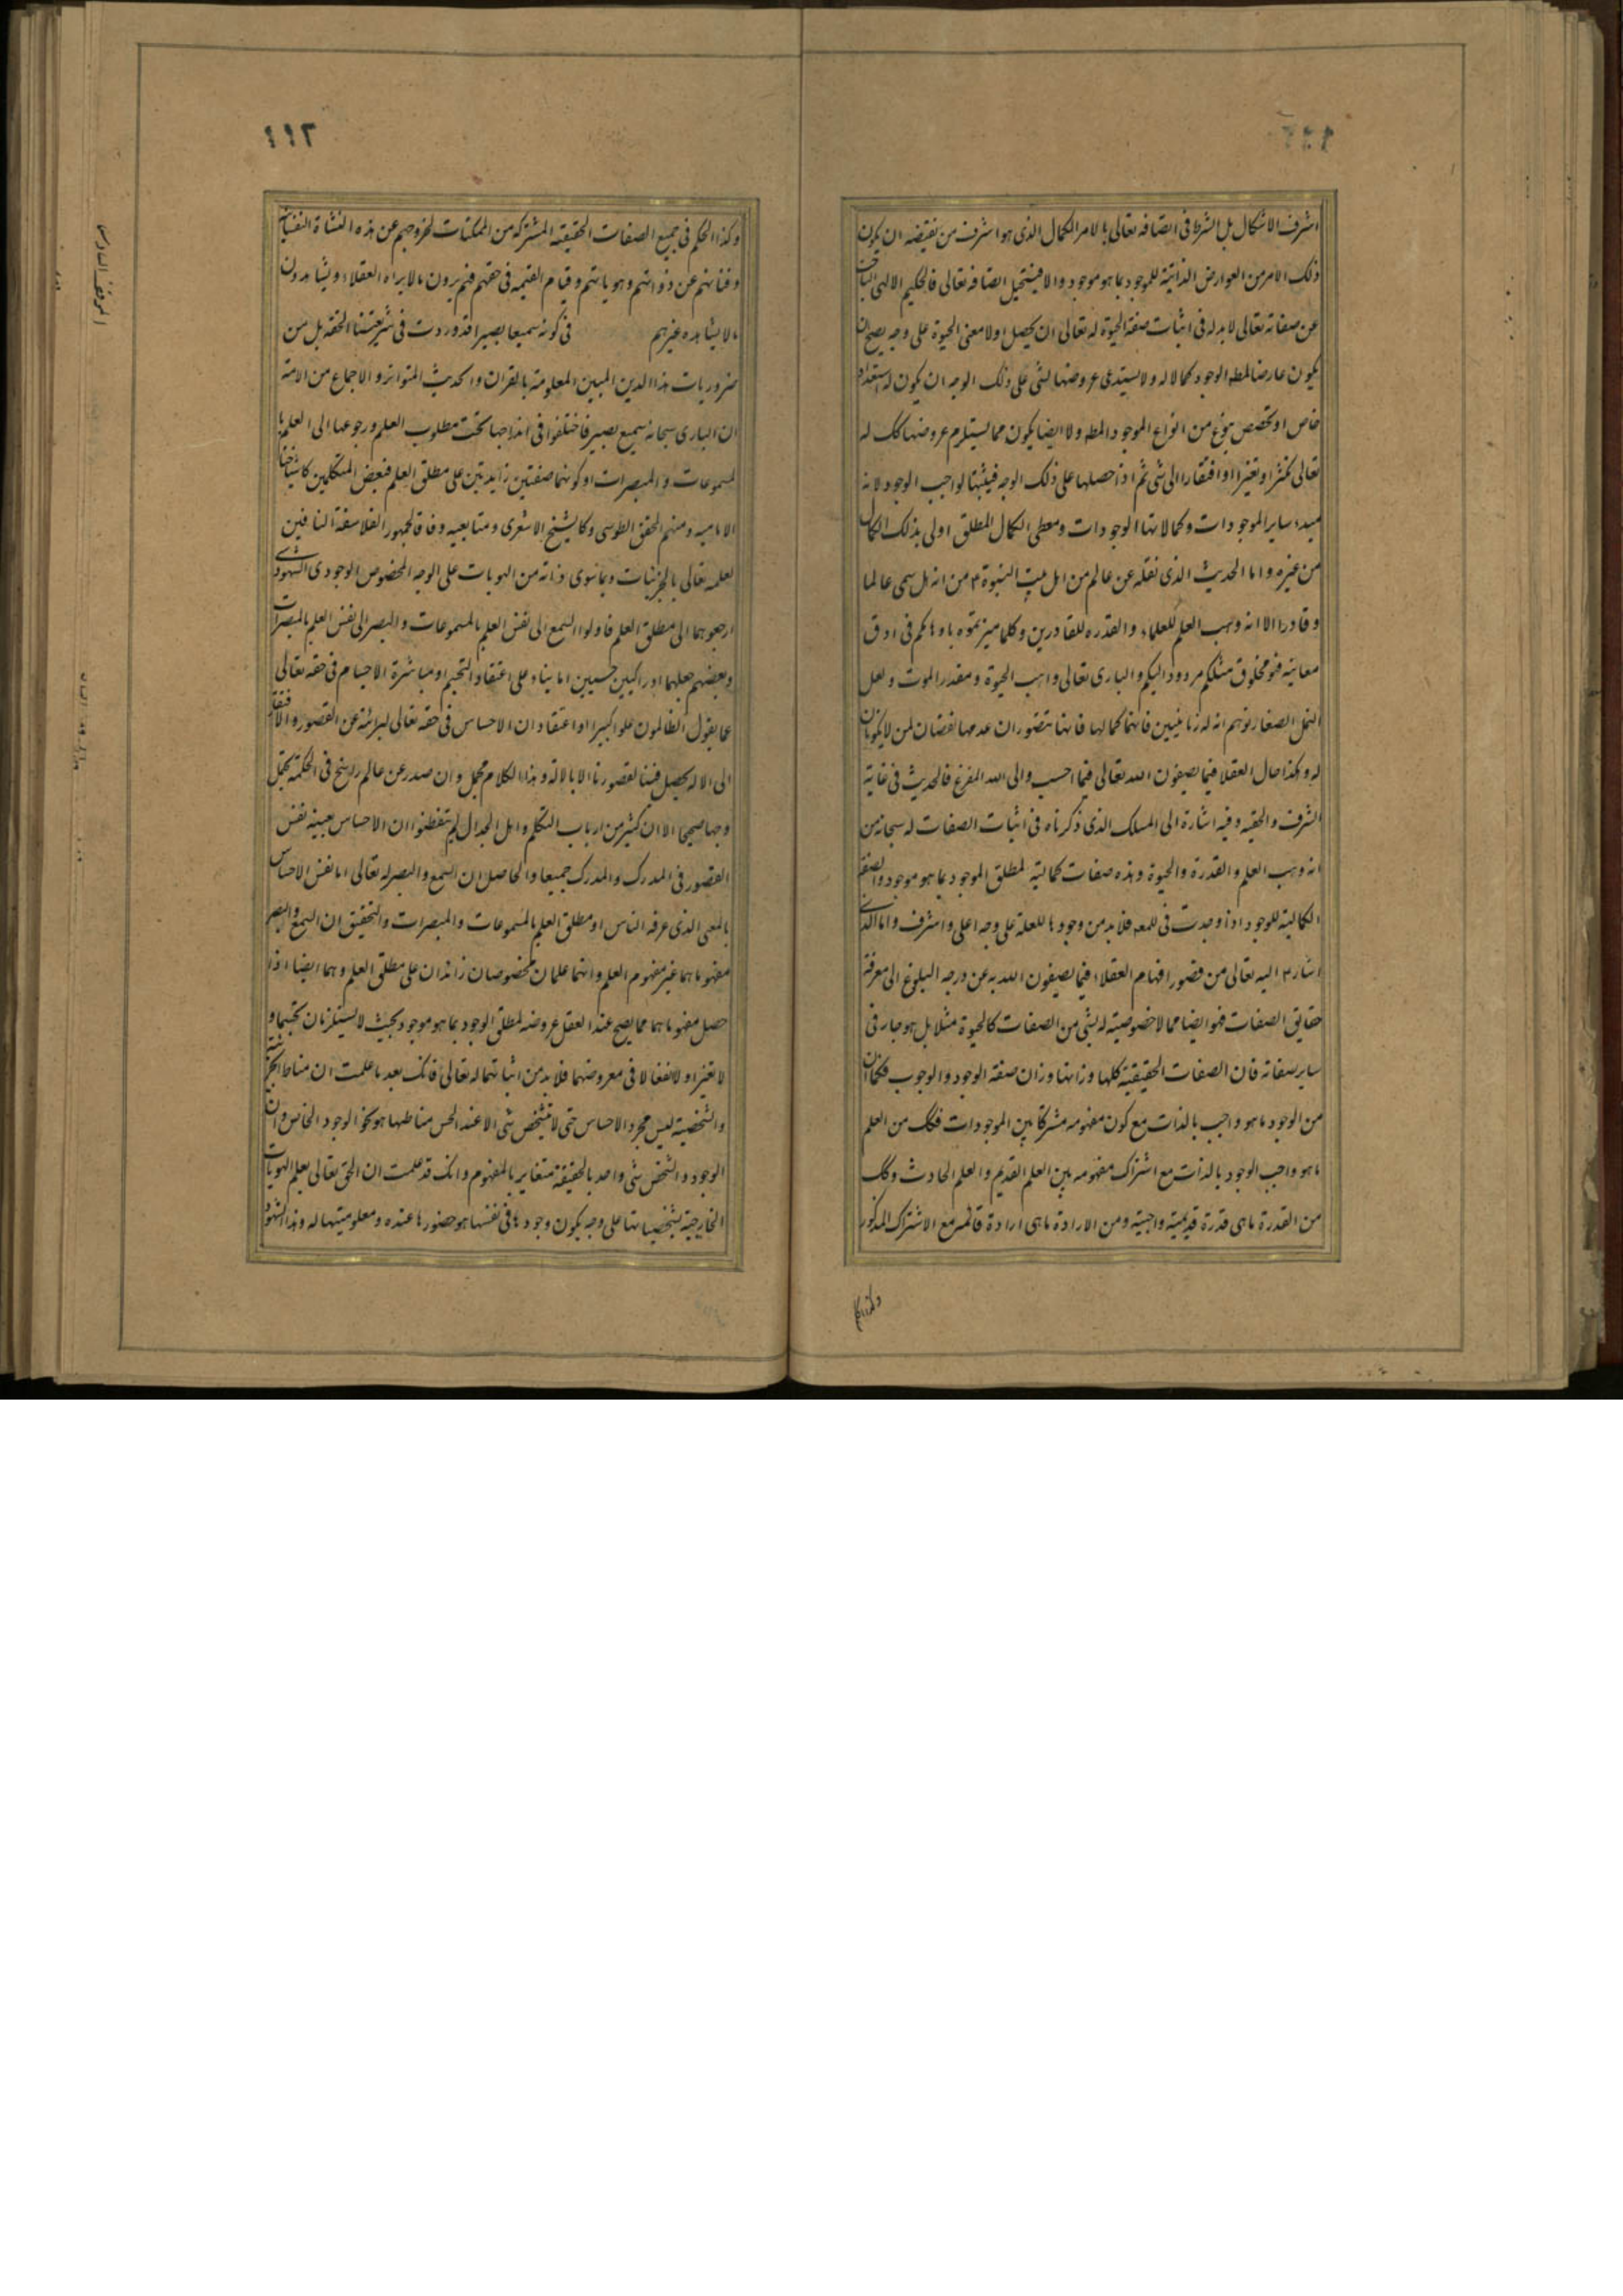 اشرف الاشكال بل الشرط فى اتصافه تعالى بالامر الكمال الذى هو اشرف من نقيضه ان يكون
ذلك الامر من العوارض الذاتية للموجود بما هو موجود والا فيستحيل اتصافه تعالى فالحكيم الالهى الباحث
عن صفاته تعالى لا بد له فى اثبات صفة الحيوة له تعالى ان يحصل اولا معنى الحيوة على وجه يصح ان
يكون عارضا لمطه الوجود كمالا له ولا يستدعى عروضها لشى على ذلك الوجه ان يكون له استعداد
خاص او تخصص بنوع من انواع الموجود المطه ولا ايضا يكون مما يستلزم عروضها كك له
تعالى تكثرا وتغيرا او افتقارا الى شى ثم اذ احصلها على ذلك الوجه فيثبتها لواجب الوجود لانه
مبدء ساير الموجودات وكمالاتها الوجودات ومعطى الكمال المطلق اولى بذلك الكمال
من غيره واما الحديث الذى نقله عن عالم من اهل بيت النبوة ع من انه هل سمى عالما
وقادرا الا انه وهب العلم للعلماء والقدره للقادرين وكلما ميزتموه باوهامكم فى ادق
معانيه فهو مخلوق مثلكم مردود اليكم والبارى تعالى واهب الحيوة ومقدر الموت ولعل
النمل الصغار توهم ان له زبانيتين فانهما كمالها فانها تتصور ان عدمهما نقصان لمن لا يكونان
له وهكذا حال العقلا فيما يصفون الله تعالى فيما احسب والى الله المفزع فالحديث فى غاية
الشرف والحقيه وفيه اشارة الى المسلك الذى ذكرناه فى اثبات الصفات له سبحانه من
انه وهب العلم والقدرة والحيوة وهذه صفات كمالية لمطلق الموجود بما هو موجود والصفة
الكمالية للموجود اذا وجدت فى للمعه فلا بد من وجودها للعلة على وجه اعلى واشرف واما الذى
اشار ع اليه تعالى من قصور افهام العقلاء فيما يصفون الله به عن درجه البلوغ الى معرفة
حقايق الصفات فهو ايضا مما لا خصوصيته له بشى من الصفات كالحيوة مثلا بل هو جار فى
ساير صفاته فان الصفات الحقيقيته كلها وزانها وزان صفة الوجود والوجوب فكما ان
من الوجود ما هو واجب بالذات مع كون مفهومه مشتركا بين الموجودات فكك من العلم
ما هو واجب الوجود بالذات مع اشتراك مفهومه بين العلم القديم والعلم الحادث وكك
من القدرة ما هى قدرة قديمية واجبيته ومن الارادة ما هى ارادة قائمه مع الاشتراك المذكور
وكذا
١١٢
وكذا الحكم فى جميع الصفات الحقيقيه المشتركه من الممكنات لخروجهم عن هذه النشاة النفسانية
وفنائهم عن ذواتهم وهوياتهم وقيام القيمه فى حقهم فهم يرون ما لا يراه العقلاء ويشاهدون
ما لا يشاهده غيرهم فى كونه سميعا بصيرا قد وردت فى شريعتنا الحقه بل من
ضروريات هذا الدين المبين المعلومة بالقران والحديث المتواتر والاجماع من الامة
ان البارى سبحانه سميع بصير فاختلفوا فى اندراجهما تحت مطلوب العلم ورجوعها الى العلم با
لمسموعات والمبصرات او كونهما صفتين زايدتين على مطلق العلم فبعض المتكلمين كاشياخنا
الاماميه ومنهم المحقق الطوسى وكالشيخ الاشعرى ومتابعيه وفاقا لجمهور الفلاسفة النافين
لعلمه تعالى بالجزئيات وبما سوى ذاته من الهويات على الوجه المخصوص الوجودى الشهودى
ارجعوهما الى مطلق العلم فاولوا السمع الى نفس العلم بالمسموعات والبصر الى نفس العلم بالمبصرات
وبعضهم جعلهما ادراكين حسيين اما بناء على اعتقاد التجيم او مباشرة الاجسام فى حقه تعالى
عما يقول الظالمون علوا كبيرا او اعتقاد ان الاحساس فى حقه تعالى لبرائته عن القصور والافتقار
الى الاله يحصل فينا لقصورنا الا بالاله وهذا الكلام مجمل وان صدر عن عالم راسخ فى الحكمة يحتمل
وجها صحيحا الا ان كثير من ارباب التكلم واهل الجدال لم يتفطنوا ان الاحساس بعينه نفس
القصور فى المدرك والمدرك جميعا والحاصل ان السمع والبصر له تعالى اما نفس الاحساس
بالمعنى الذى عرفه الناس او مطلق العلم بالمسموعات والمبصرات والتحقيق ان السمع والبصر
مفهوماهما غير مفهوم العلم وانهما علمان مخصوصان زائدان على مطلق العلم وهما ايضا اذا
حصل مفهوماهما مما يصح عند العقل عروضه لمطلق الوجود بما هو موجود بحيث لا يستلزمان تجيما و
لا تغيرا ولا انفعالا فى معروضهما فلا بد من اثباتهما له تعالى فانك بعد ما علمت ان مناط الجزئية
والشخصية ليس مجرد الاحساس حتى لا يتشخص شى الا عند الحس مناطها هو نحو الوجود الخاص وان
الوجود والتشخص شى واحد بالحقيقة متغاير بالمفهوم وانك قد علمت ان الحق تعالى يعلم الهويات
الخارجية بشخصياتها على وجه يكون وجودها فى نفسها هو حضورها عنده ومعلوميتها له وهذا الشهود
الموقف السادس